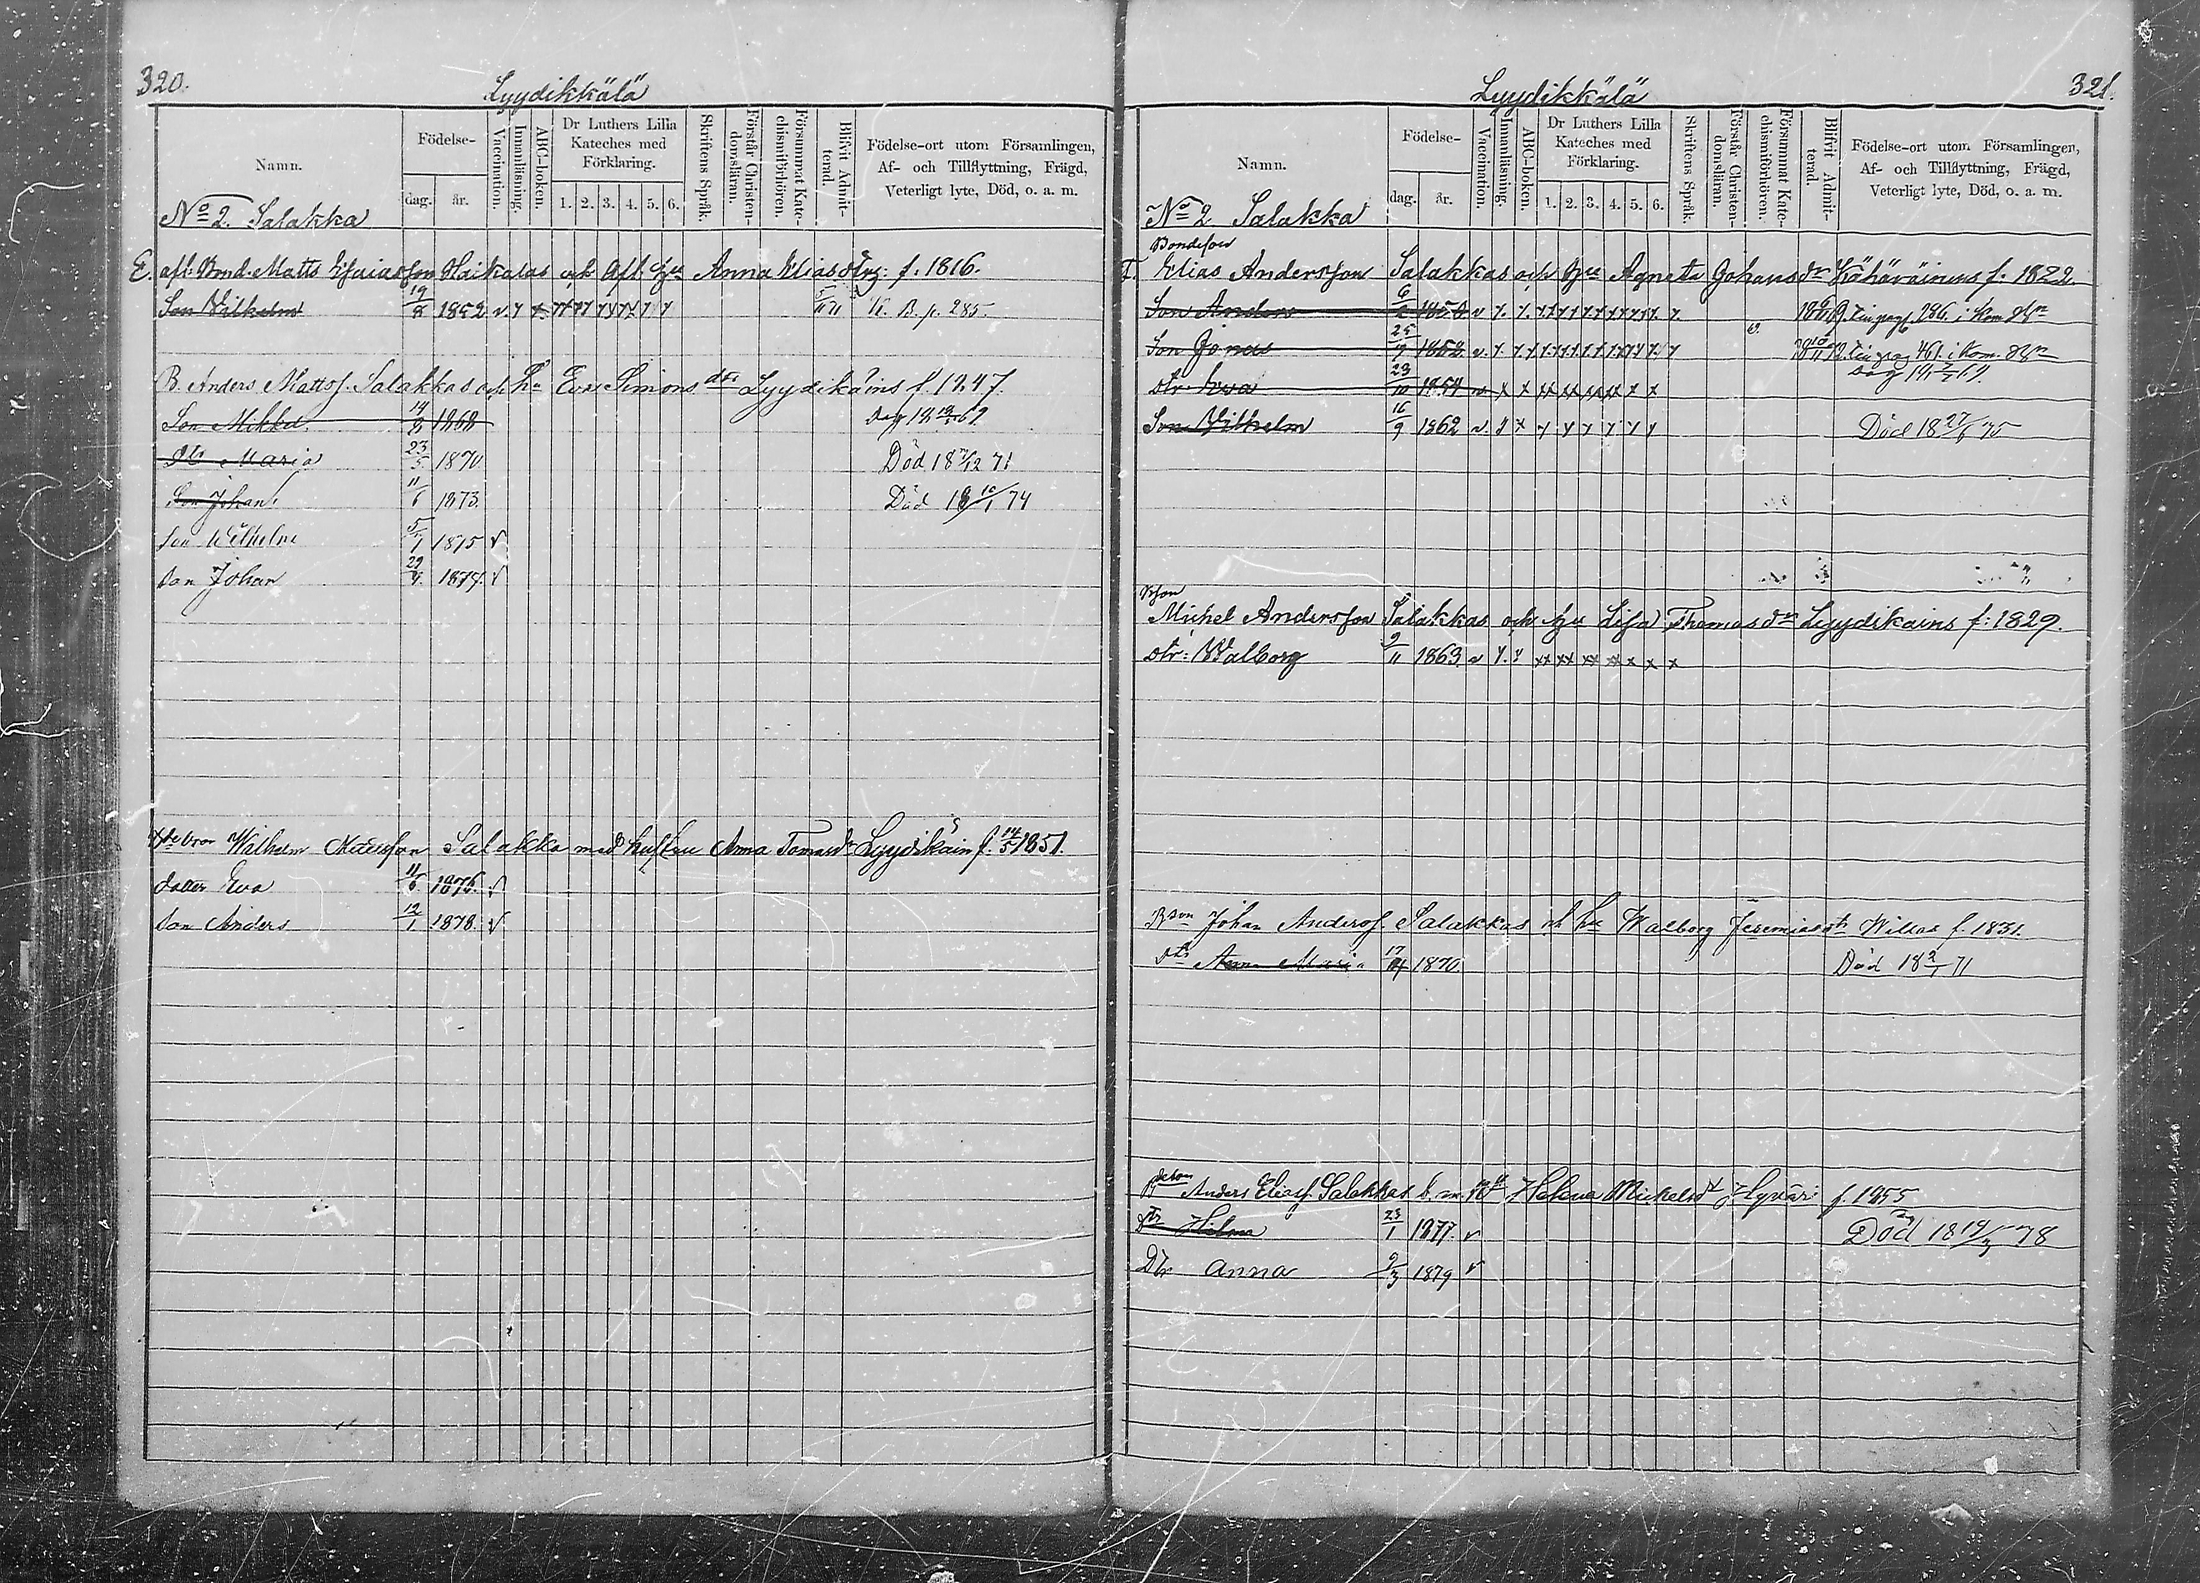 320.
Lyydikkälä
Namn.
Födelse-
dag.
år.
Vaccination.
Innanläsning.
ABC-boken.
Dr Luthers Lilla
Kateches med
Förklaring.
1. 2. 3. 4. 5. 6.
Skriftens Språk.
Förstår Christen-
domsläran.
Försummat Kate-
chismiförhören.
Blifvit Admit-
terad.
Födelse-ort utom Församlingen,
Af- och Tillflyttning, Frägd,
Veterligt lyte, Död, o. a. m.
No 2. Salakka
E. afl. Bond. Matts Esaiasson Haikalas och afl. hu Anna Eliasdtr f. 1816.
Son Vilhelm 19/8 1852 v. K. B. p. 285.
B. Anders Mattsf. Salakkas och hu Eva Simonsdtr Lyydikäins f. 1847.
Son Mikkel 14/3 1868
Dtr Maria 23/5 1870 Död 18 7/12 71
Son Johan 11/6 1873. Död 18 10/1 74
Son Wilhelm 5/1 1875 v
Son Johan 29/4 1877. v
Wilhelm Matsson Salakka med hustru Anna Tomasdr Lyydikäin f. 14/5 1851.
dotter Eva 11/6 1876. v
Son Anders 12/1 1878. v
321.
Lyydikkälä
Namn.
Födelse-
dag.
år.
Vaccination.
Innanläsning.
ABC-boken.
Dr Luthers Lilla
Kateches med
Förklaring.
1. 2. 3. 4. 5. 6.
Skriftens Språk.
Förstår Christen-
domsläran.
Försummat Kate-
chismiförhören.
Blifvit Admit-
terad.
Födelse-ort utom Församlingen,
Af- och Tillflyttning, Frägd,
Veterligt lyte, Död, o. a. m.
No 2 Salakka
Bondeson
Elias Andersson Salakkas och hu Agneta Johansdr Kähäräinens f. 1822.
Son Anders 6/2 1850 v
Son Jonas 25/9 1852 v.
dtr Eva 23/10 1857
Son Vilhelm 16/9 1862 v. Död 18 27/6 75
Michel Andersson Salakkas och hu Lisa Thomasdr Lyydikains f: 1829.
dtr: Walborg 9/11 1863 v
Bson Johan Andersf. Salakkas och hu Walborg Jeremiasdtr Willas f. 1831.
dtr Anna Maria 17/4 1870 Död 18 2/1 71
Anders Eliasf. Salakkas Helena Mickelsdr Hyväri f. 1855
Dtr Hilma 23/1 1877. v Död 18 19/3 78
Dtr Anna 9/3 1879 v